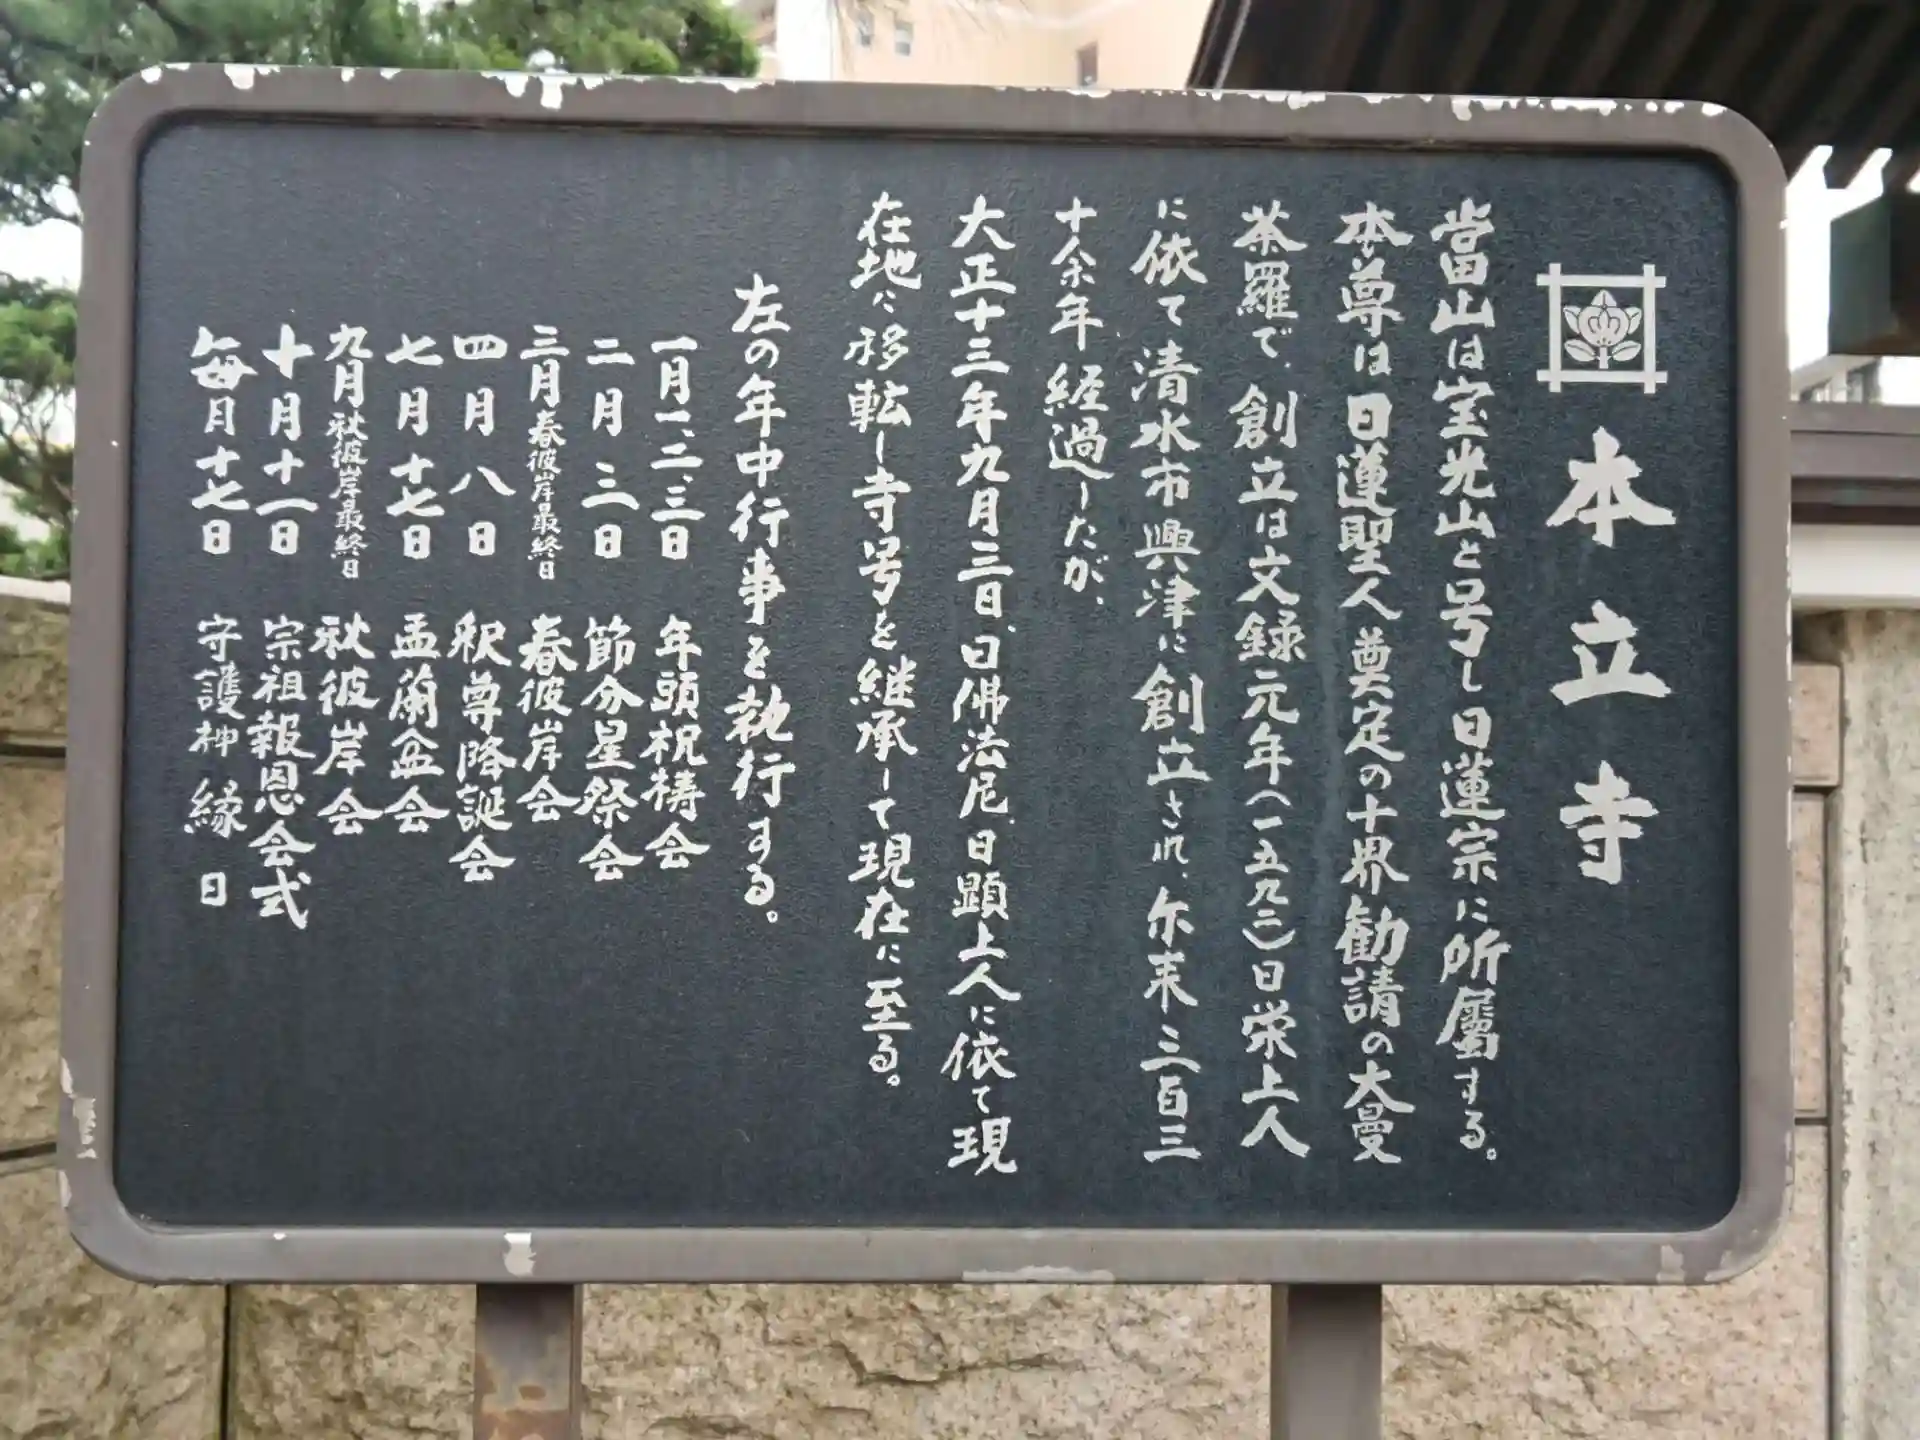 本立寺
當山は宝光山と号し日蓮宗に所属する。
本尊は日蓮聖人奠定の十界勧請の大曼
茶羅で、創立は文録元年(一五九二)日栄上人
に依て清水市興津に創立され、尓来三百三
十余年経過したが、
大正十三年九月三日、日佛法尼、日顕上人に依て現
在地に移転し寺号を継承して現在に至る。
左の年中行事を執行する。
一月一、二、三日 年頭祝祷会
二月三日 節分星祭会
三月春彼岸最終日 春彼岸会
四月八日 釈尊降誕会
七月十七日 盂蘭盆会
九月秋彼岸最終日 秋彼岸会
十月十一日 宗祖報恩会式
毎月十七日 守護神縁日